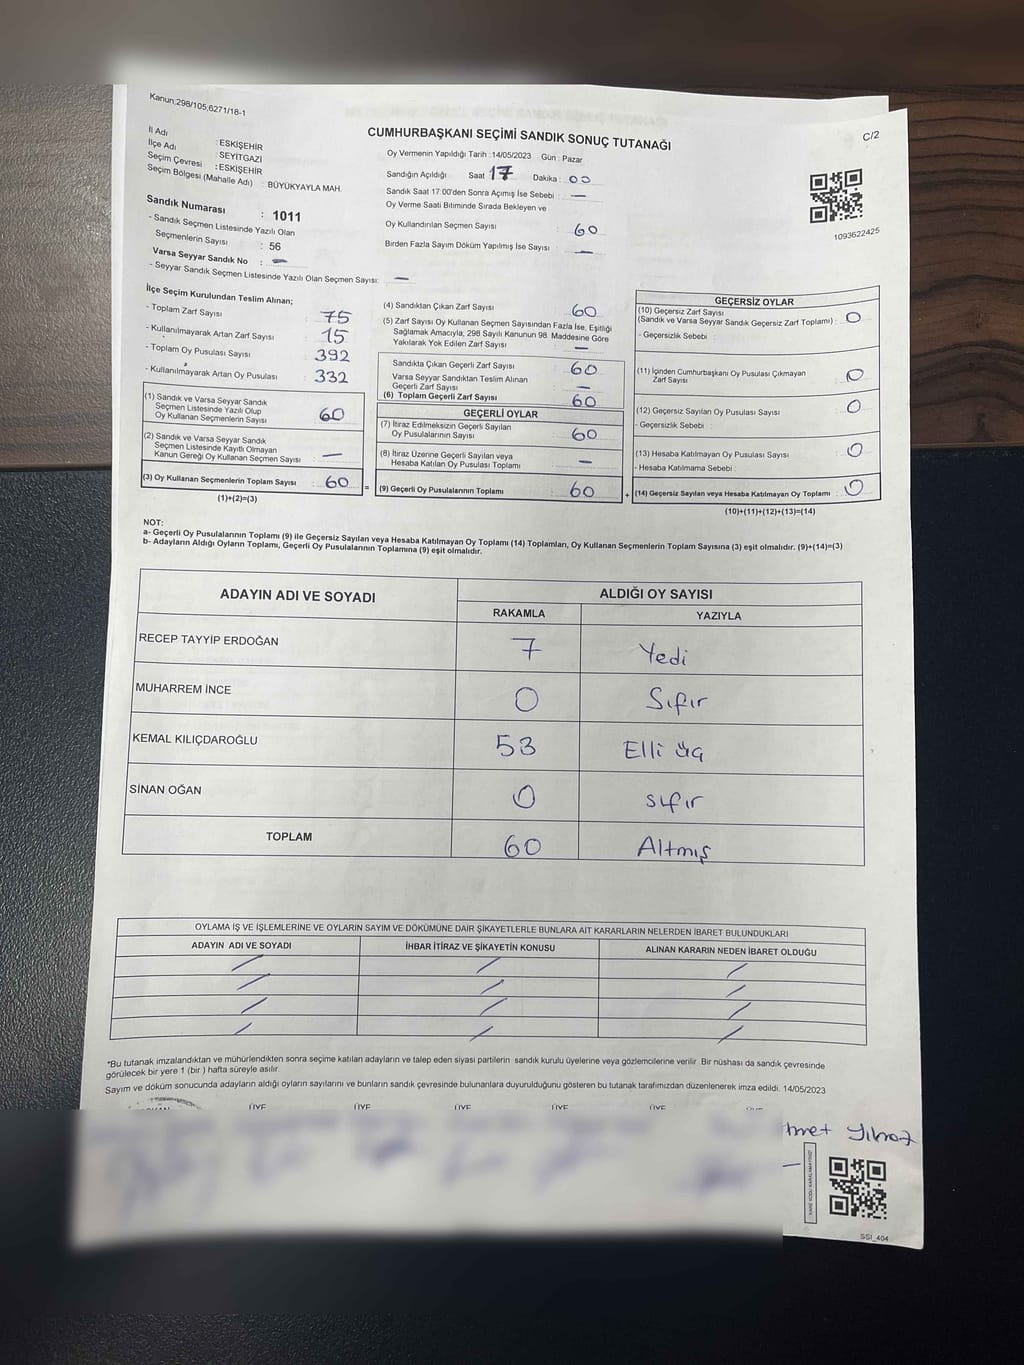 Kanun:298/105,6271/18-1
CUMHURBAŞKANI SEÇİMİ SANDIK SONUÇ TUTANAĞI
C/2
İl Adı : ESKİŞEHİR
İlçe Adı : SEYİTGAZİ
Seçim Çevresi : ESKİŞEHİR
Seçim Bölgesi (Mahalle Adı) : BÜYÜKYAYLA MAH.
Sandık Numarası : 1011
- Sandık Seçmen Listesinde Yazılı Olan
Seçmenlerin Sayısı : 56
Varsa Seyyar Sandık No : —
- Seyyar Sandık Seçmen Listesinde Yazılı Olan Seçmen Sayısı: —
Oy Vermenin Yapıldığı Tarih :14/05/2023 Gün : Pazar
Sandığın Açıldığı Saat 17 Dakika : 00
Sandık Saat 17:00'den Sonra Açımış İse Sebebi : —
Oy Verme Saati Bitiminde Sırada Bekleyen ve
Oy Kullandırılan Seçmen Sayısı : 60
Birden Fazla Sayım Döküm Yapılmış İse Sayısı : —
1093622425
İlçe Seçim Kurulundan Teslim Alınan;
- Toplam Zarf Sayısı : 75
- Kullanılmayarak Artan Zarf Sayısı : 15
- Toplam Oy Pusulası Sayısı : 392
- Kullanılmayarak Artan Oy Pusulası : 332
(1) Sandık ve Varsa Seyyar Sandık
Seçmen Listesinde Yazılı Olup
Oy Kullanan Seçmenlerin Sayısı : 60
(2) Sandık ve Varsa Seyyar Sandık
Seçmen Listesinde Kayıtlı Olmayan
Kanun Gereği Oy Kullanan Seçmen Sayısı : —
(3) Oy Kullanan Seçmenlerin Toplam Sayısı : 60
(1)+(2)=(3)
=
(4) Sandıktan Çıkan Zarf Sayısı : 60
(5) Zarf Sayısı Oy Kullanan Seçmen Sayısından Fazla İse, Eşitliği
Sağlamak Amacıyla, 298 Sayılı Kanunun 98. Maddesine Göre
Yakılarak Yok Edilen Zarf Sayısı : —
Sandıkta Çıkan Geçerli Zarf Sayısı : 60
Varsa Seyyar Sandıktan Teslim Alınan
Geçerli Zarf Sayısı : —
(6) Toplam Geçerli Zarf Sayısı : 60
GEÇERLİ OYLAR
(7) İtiraz Edilmeksizin Geçerli Sayılan
Oy Pusulalarının Sayısı : 60
(8) İtiraz Üzerine Geçerli Sayılan veya
Hesaba Katılan Oy Pusulası Toplamı : —
(9) Geçerli Oy Pusulalarının Toplamı : 60
+
GEÇERSİZ OYLAR
(10) Geçersiz Zarf Sayısı
(Sandık ve Varsa Seyyar Sandık Geçersiz Zarf Toplamı) : 0
- Geçersizlik Sebebi :
(11) İçinden Cumhurbaşkanı Oy Pusulası Çıkmayan
Zarf Sayısı : 0
(12) Geçersiz Sayılan Oy Pusulası Sayısı : 0
- Geçersizlik Sebebi :
(13) Hesaba Katılmayan Oy Pusulası Sayısı : 0
- Hesaba Katılmama Sebebi :
(14) Geçersiz Sayılan veya Hesaba Katılmayan Oy Toplamı : 0
(10)+(11)+(12)+(13)=(14)
NOT:
a- Geçerli Oy Pusulalarının Toplamı (9) ile Geçersiz Sayılan veya Hesaba Katılmayan Oy Toplamı (14) Toplamları, Oy Kullanan Seçmenlerin Toplam Sayısına (3) eşit olmalıdır. (9)+(14)=(3)
b- Adayların Aldığı Oyların Toplamı, Geçerli Oy Pusulalarının Toplamına (9) eşit olmalıdır.
ADAYIN ADI VE SOYADI ALDIĞI OY SAYISI
RAKAMLA YAZIYLA
RECEP TAYYİP ERDOĞAN 7 Yedi
MUHARREM İNCE 0 Sıfır
KEMAL KILIÇDAROĞLU 53 Elli üç
SİNAN OĞAN 0 sıfır
TOPLAM 60 Altmış
OYLAMA İŞ VE İŞLEMLERİNE VE OYLARIN SAYIM VE DÖKÜMÜNE DAİR ŞİKAYETLERLE BUNLARA AİT KARARLARIN NELERDEN İBARET BULUNDUKLARI
ADAYIN ADI VE SOYADI İHBAR İTİRAZ VE ŞİKAYETİN KONUSU ALINAN KARARIN NEDEN İBARET OLDUĞU
*Bu tutanak imzalandıktan ve mühürlendikten sonra seçime katılan adayların ve talep eden siyasi partilerin sandık kurulu üyelerine veya gözlemcilerine verilir. Bir nüshası da sandık çevresinde
görülecek bir yere 1 (bir ) hafta süreyle asılır.
Sayım ve döküm sonucunda adayların aldığı oyların sayılarını ve bunların sandık çevresinde bulunanlara duyurulduğunu gösteren bu tutanak tarafımızdan düzenlenerek imza edildi. 14/05/2023
ÜYE ÜYE ÜYE ÜYE ÜYE
SSI_404